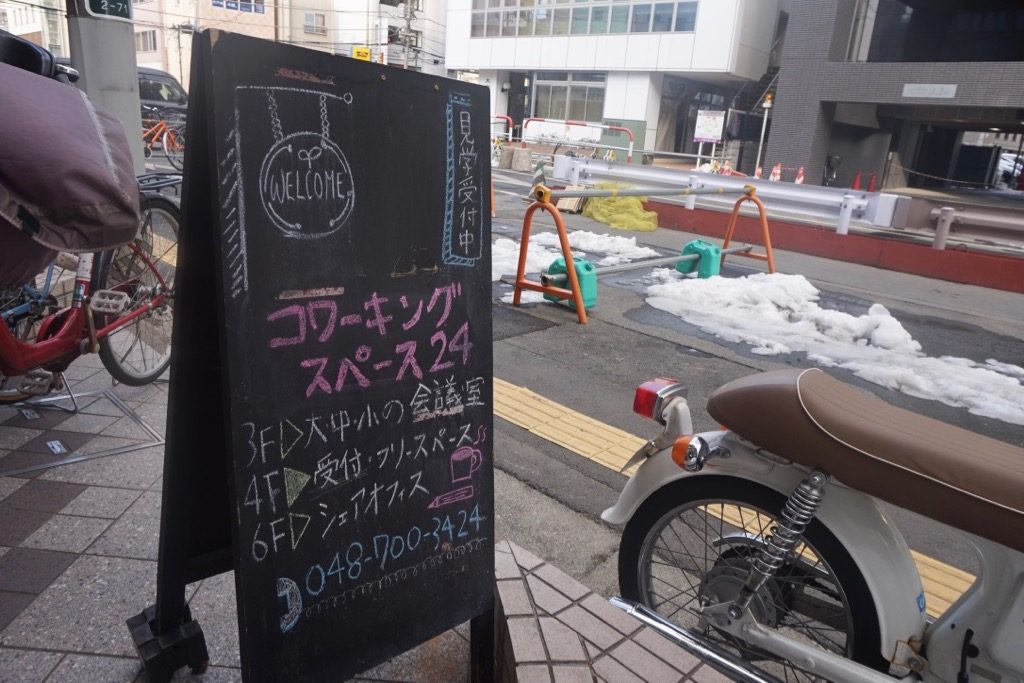 2-7
WELCOME
見学受付中
コワーキング
スペース24
3F▷大・中・小の会議室
4F▷受付・フリースペース
6F▷シェアオフィス
048-700-3424